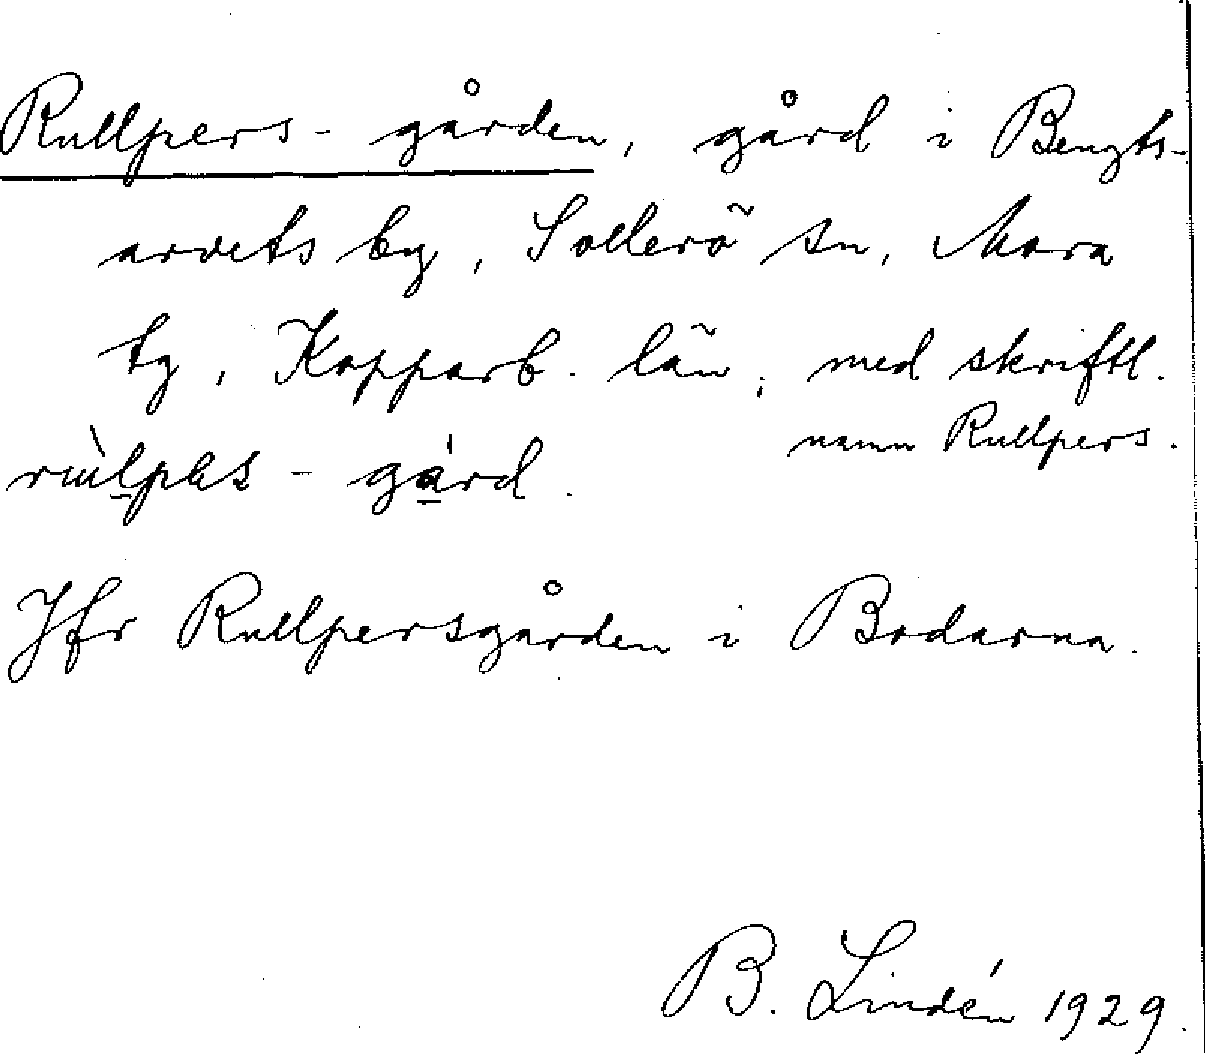 Rullpers-gården, gård i Bengts-
arvets by, Sollerö sn, Mora
tg, Kopparb. län, med skriftl.
namn Rullpers.
gård.
Jfr Rullpersgården i Bodarna.
B. Lindén 1929.